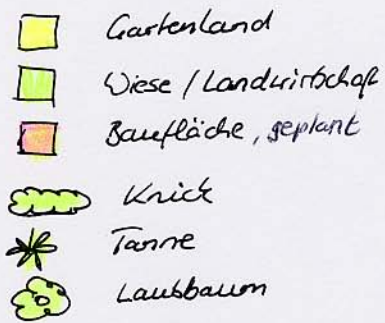 Gartenland
Wiese / Landwirtschaft
Baufläche, geplant
Knick
Tanne
Laubbaum